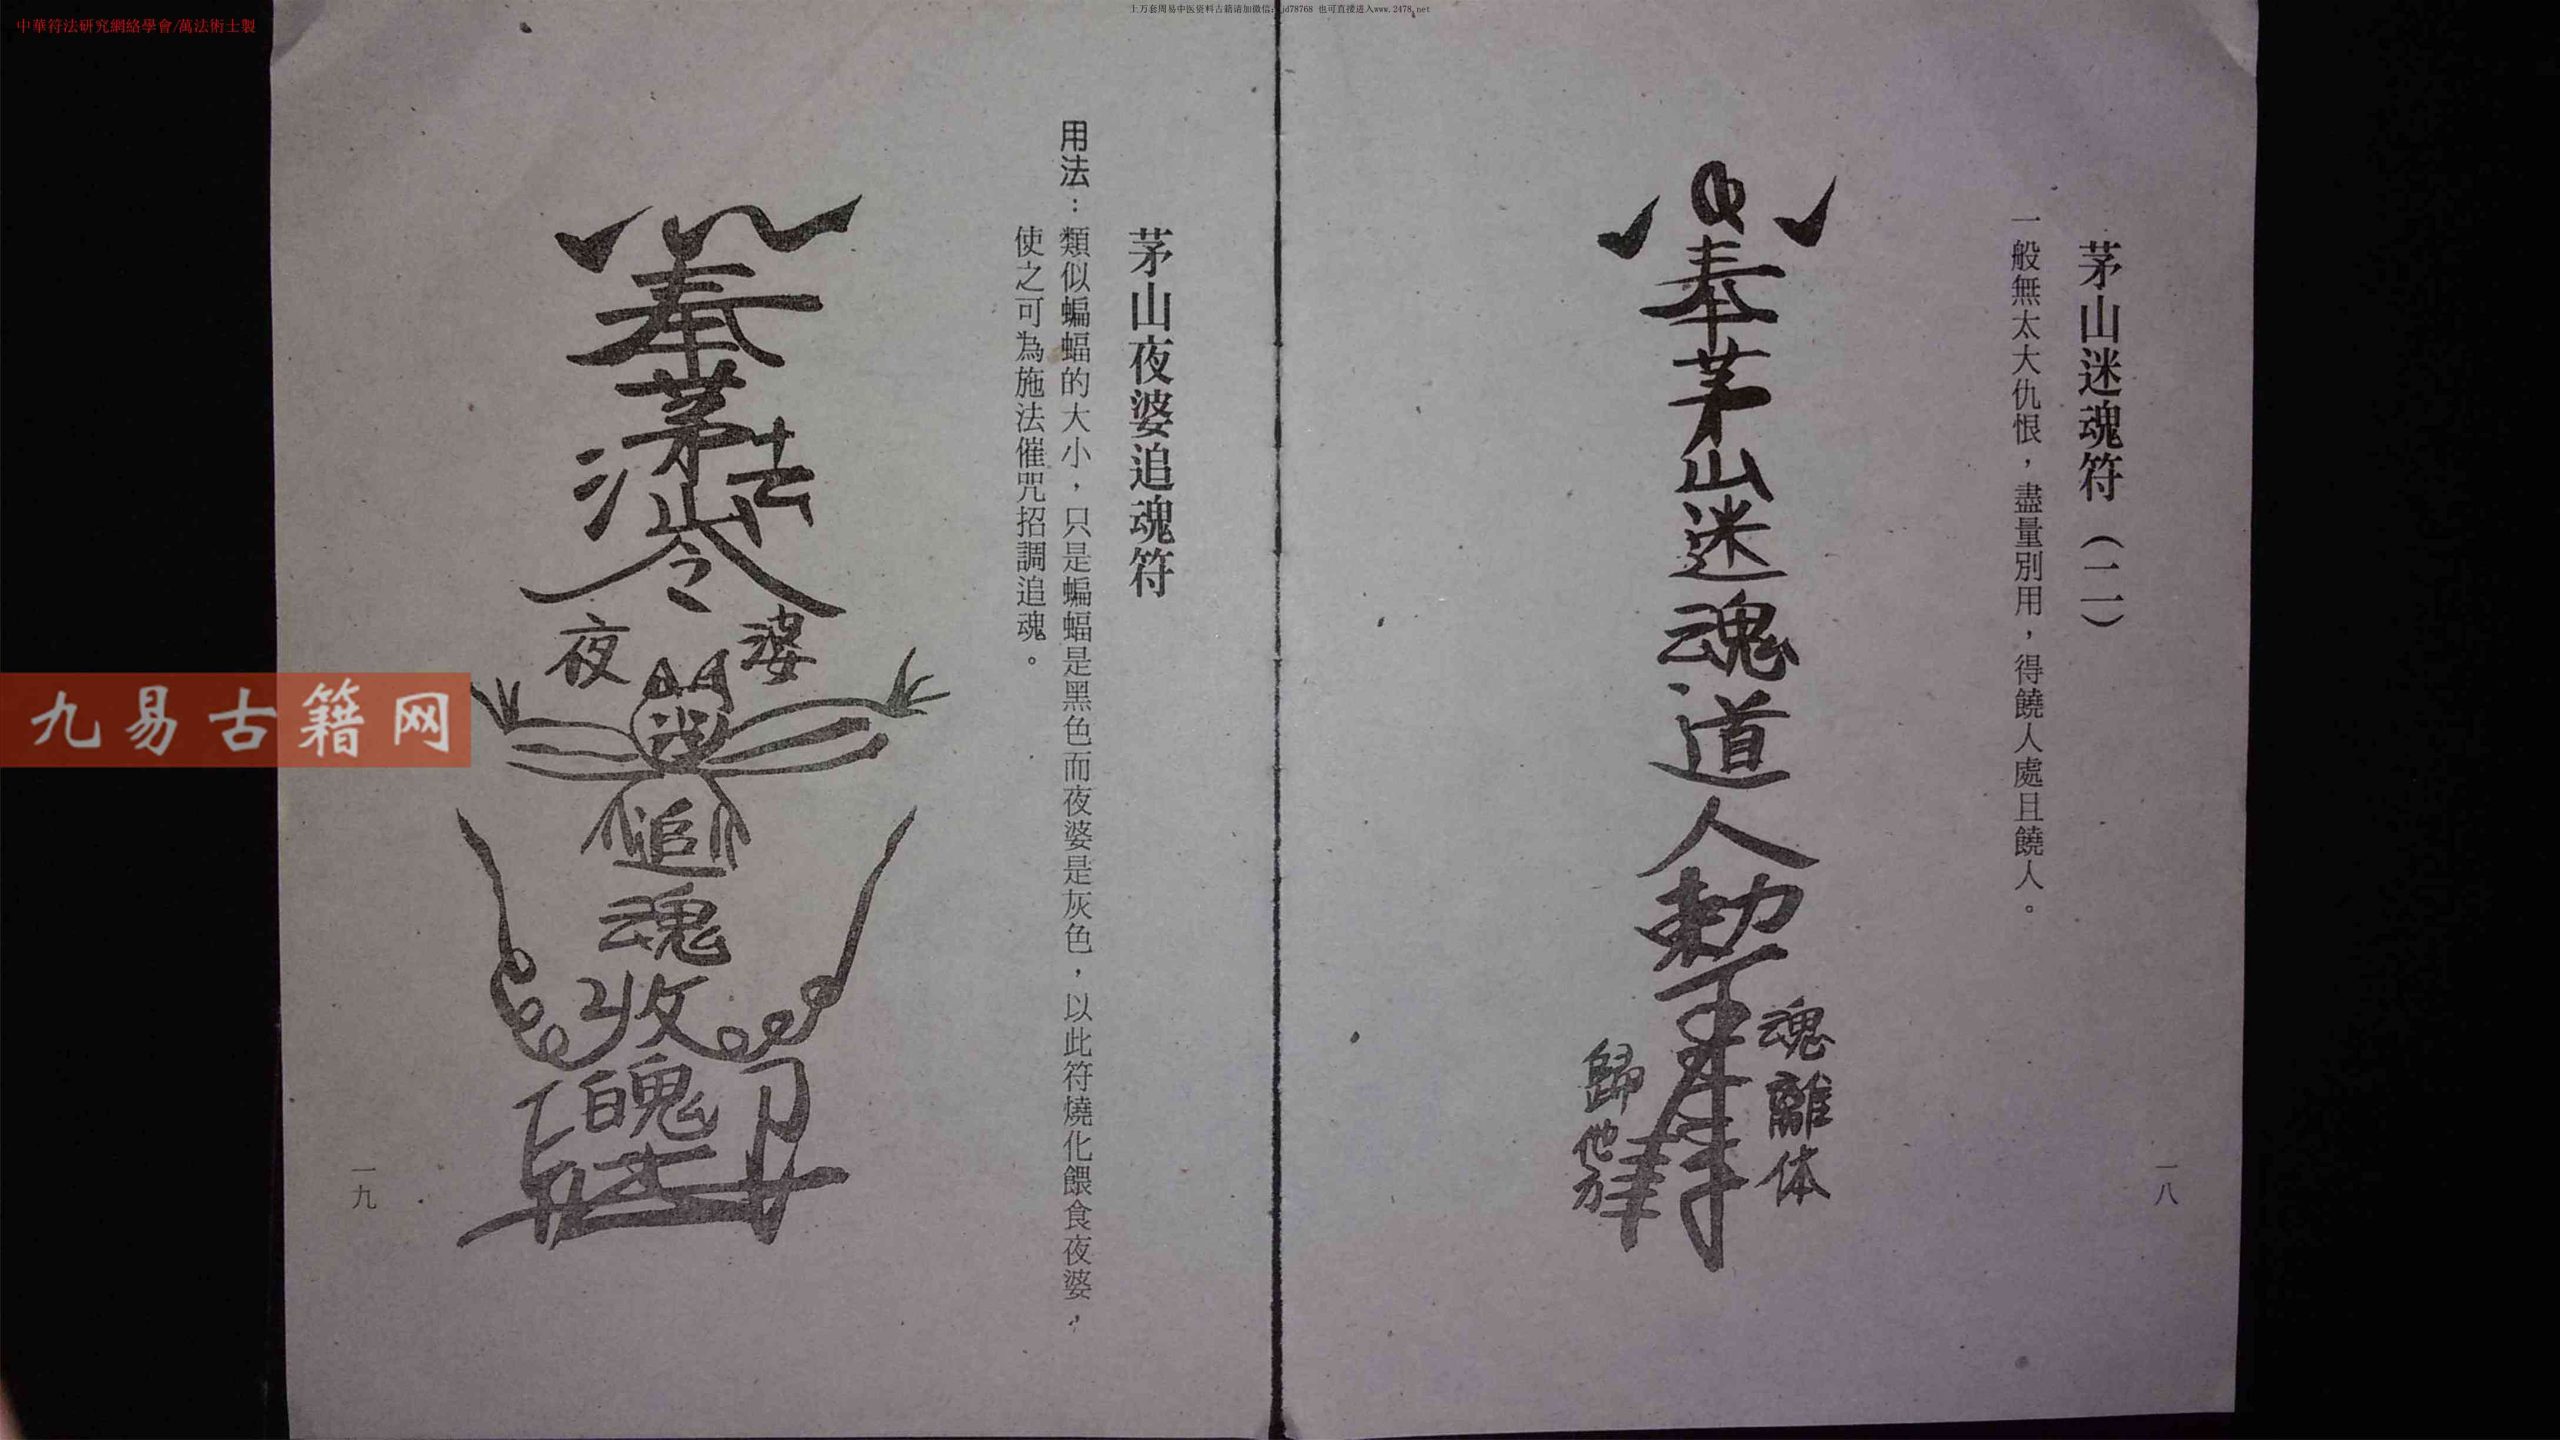 中華符法研究網絡學會/萬法術士製
上万套周易中医资料古籍请加微信:jd78768 也可直接进入www.2478.net
茅山迷魂符（二）
一般無太大仇恨，盡量別用，得饒人處且饒人。
奉茅山迷魂道人勅令
魂離体
歸他方
一八
茅山夜婆追魂符
用法：類似蝙蝠的大小，只是蝙蝠是黑色而夜婆是灰色，以此符燒化餵食夜婆，
使之可為施法催咒招調追魂。
奉茅山法令
夜婆
追魂收魄
一九
九易古籍网